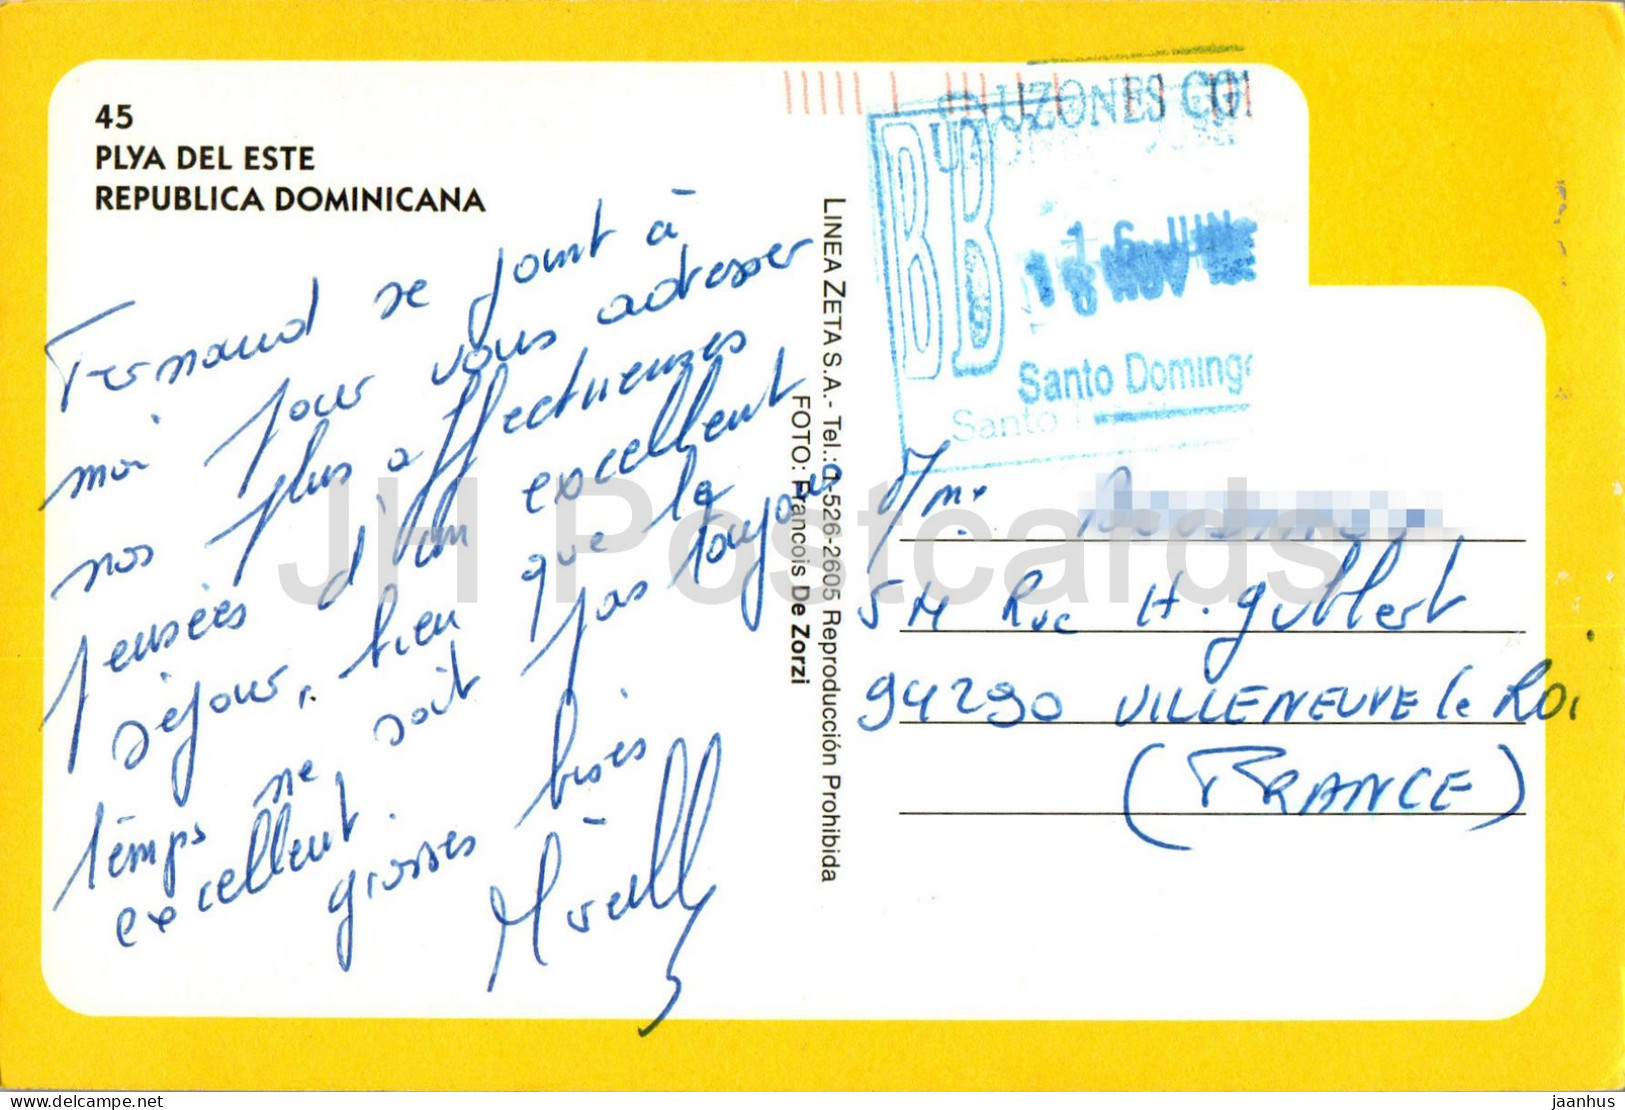 45
PLYA DEL ESTE
REPUBLICA DOMINICANA
Fernand se joint à
moi pour vous adresser
nos plus affectueuses
pensées d'un excellent
séjour, bien que le
temps ne soit pas toujours
excellent.
grosses bises
Mireille
LINEA ZETA S.A.- Tel.: 526-2605 Reproducción Prohibida
FOTO: Francois De Zorzi
BUZONES
BB
16 JUN
18 NOV
Santo Doming
Santo
Mme
54 Rue H. Gubbert
94290 VILLENEUVE le ROI
(FRANCE)
JH Postcards
delcampe.net
jaanhus